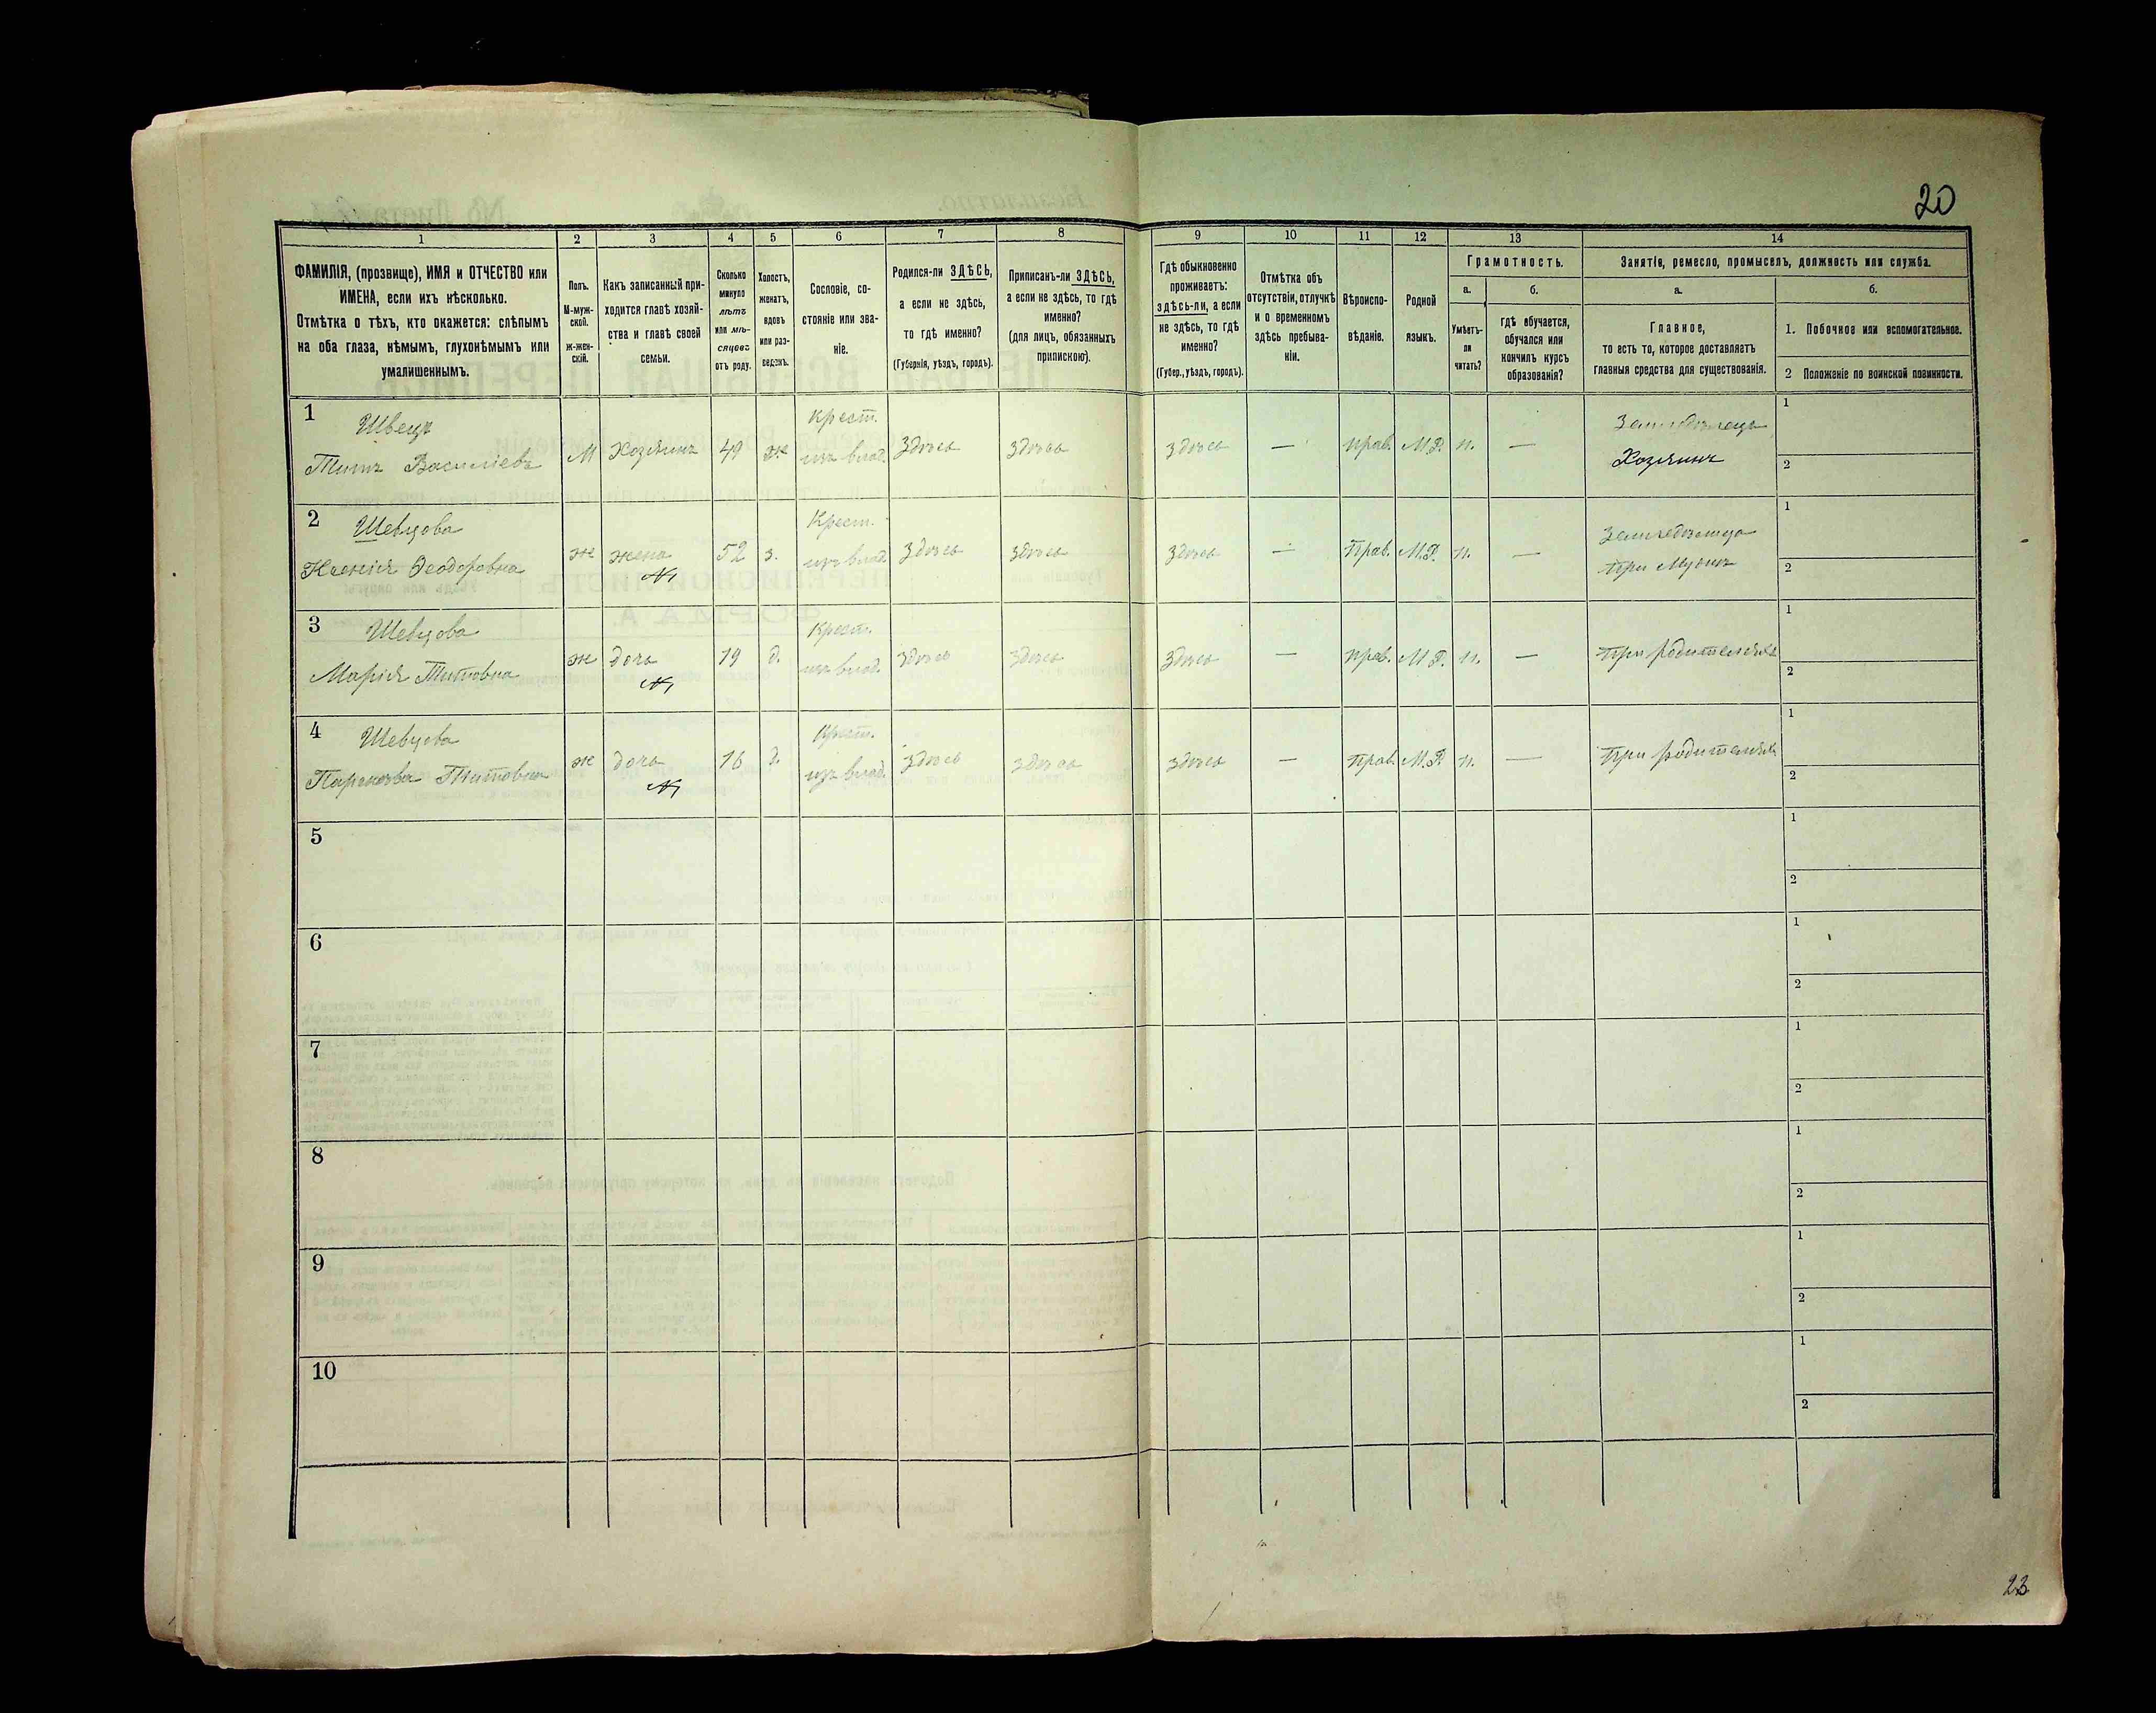 20
1
2
3
4
5
6
7
8
9
10
11
12
13
14
ФАМИЛІЯ, (прозвище), ИМЯ и ОТЧЕСТВО или
ИМЕНА, если ихъ нѣсколько.
Отмѣтка о тѣхъ, кто окажется: слѣпымъ
на оба глаза, нѣмымъ, глухонѣмымъ или
умалишеннымъ.
Полъ.
М-муж-
ской.
ж-жен-
скій.
Какъ записанный при-
ходится главѣ хозяй-
ства и главѣ своей
семьи.
Сколько
минуло
лѣтъ
или мѣ-
сяцовъ
отъ роду.
Холостъ,
женатъ,
вдовъ
или раз-
веденъ.
Сословіе, со-
стояніе или зва-
ніе.
Родился-ли ЗДѢСЬ,
а если не здѣсь,
то гдѣ именно?
(Губернія, уѣздъ, городъ).
Приписанъ-ли ЗДѢСЬ,
а если не здѣсь, то гдѣ
именно?
(для лицъ, обязанныхъ
припискою).
Гдѣ обыкновенно
проживаетъ:
здѣсь-ли, а если
не здѣсь, то гдѣ
именно?
(Губер., уѣздъ, городъ).
Отмѣтка объ
отсутствіи, отлучкѣ
и о временномъ
здѣсь пребыва-
ніи.
Вѣроиспо-
вѣданіе.
Родной
языкъ.
Грамотность.
а.
Умѣетъ-
ли
читать?
б.
гдѣ обучается,
обучался или
кончилъ курсъ
образованія?
Занятіе, ремесло, промыселъ, должность или служба.
а.
Главное,
то есть то, которое доставляетъ
главныя средства для существованія.
б.
1. Побочное или вспомогательное.
2 Положеніе по воинской повинности.
1
Швецъ
Титъ Васильевъ
М
Хозяинъ
49
ж
Крест.
изъ влад.
Здѣсь
Здѣсь
Здѣсь
—
прав.
М.Р.
н.
—
Земледѣлецъ
Хозяинъ
1
2
2
Шевцова
Ксенія Ѳеодоровна
ж
жена
52
з.
Крест.
изъ влад.
Здѣсь
Здѣсь
Здѣсь
—
Прав.
М.Р.
н.
—
Земледѣлица
при мужѣ
1
2
3
Шевцова
Марія Титовна
ж
дочь
19
д.
Крест.
изъ влад.
Здѣсь
Здѣсь
Здѣсь
—
прав.
М.Р.
н.
—
При родителяхъ
1
2
4
Шевцова
Титовна
ж
дочь
16
д.
Крест.
изъ влад.
Здѣсь
Здѣсь
Здѣсь
—
прав.
М.Р.
н.
—
При родителяхъ
1
2
5
1
2
6
1
2
7
1
2
8
1
2
9
1
2
10
1
2
23